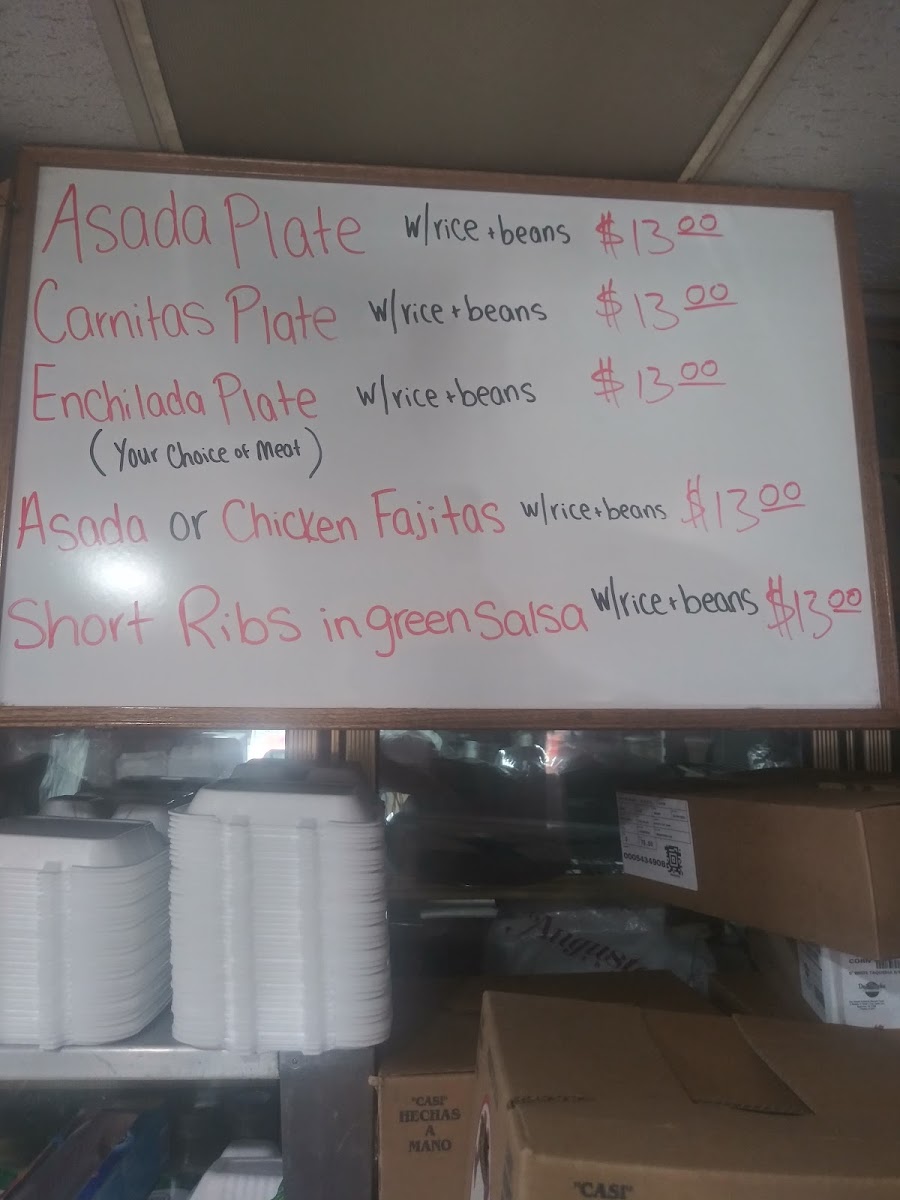 Asada Plate w/rice + beans $13.00
Carnitas Plate w/rice + beans $13.00
Enchilada Plate w/rice + beans $13.00
(Your Choice of Meat)
Asada or Chicken Fajitas w/rice + beans $13.00
Short Ribs in green Salsa w/rice + beans $13.00
"CASI"
HECHAS
A
MANO
"CASI"